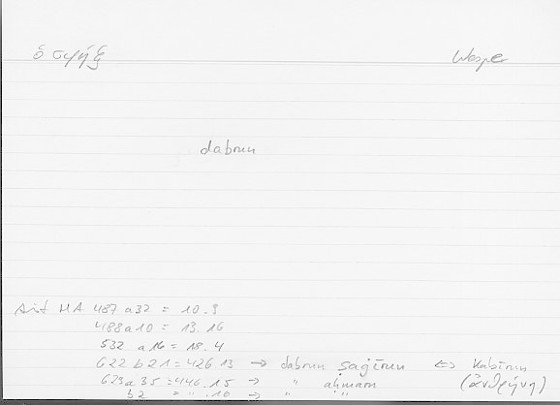 ὁ σφήξ Wespe
dabrun
Arist HA 487 a32 = 10.9
488a10 = 13.16
532 a16 = 18.4
622 b21 = 426.13 → dabrun ṣaġīrun ⇔ kabīrun
629a35 = 446.15 → " aḥmaru (ἀνθρήνη)
b2 " " .18 → " "